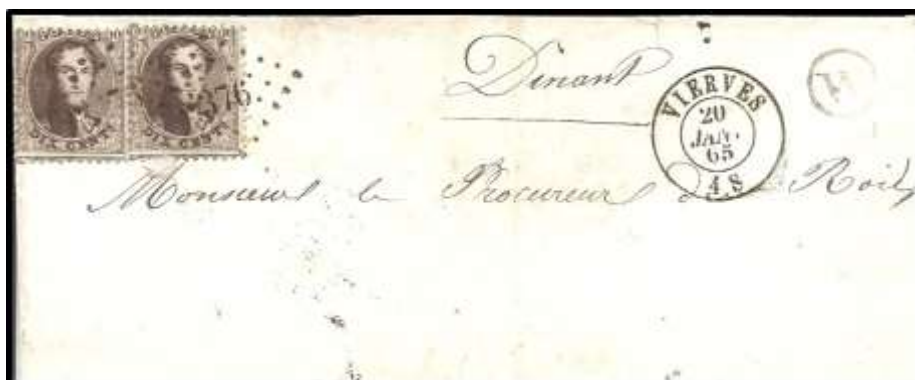 DIX CENTS DIX CENTS
376
Dinant
VIERVES
20
JANV.
65
4 S
Monsieur le Procureur du Roi